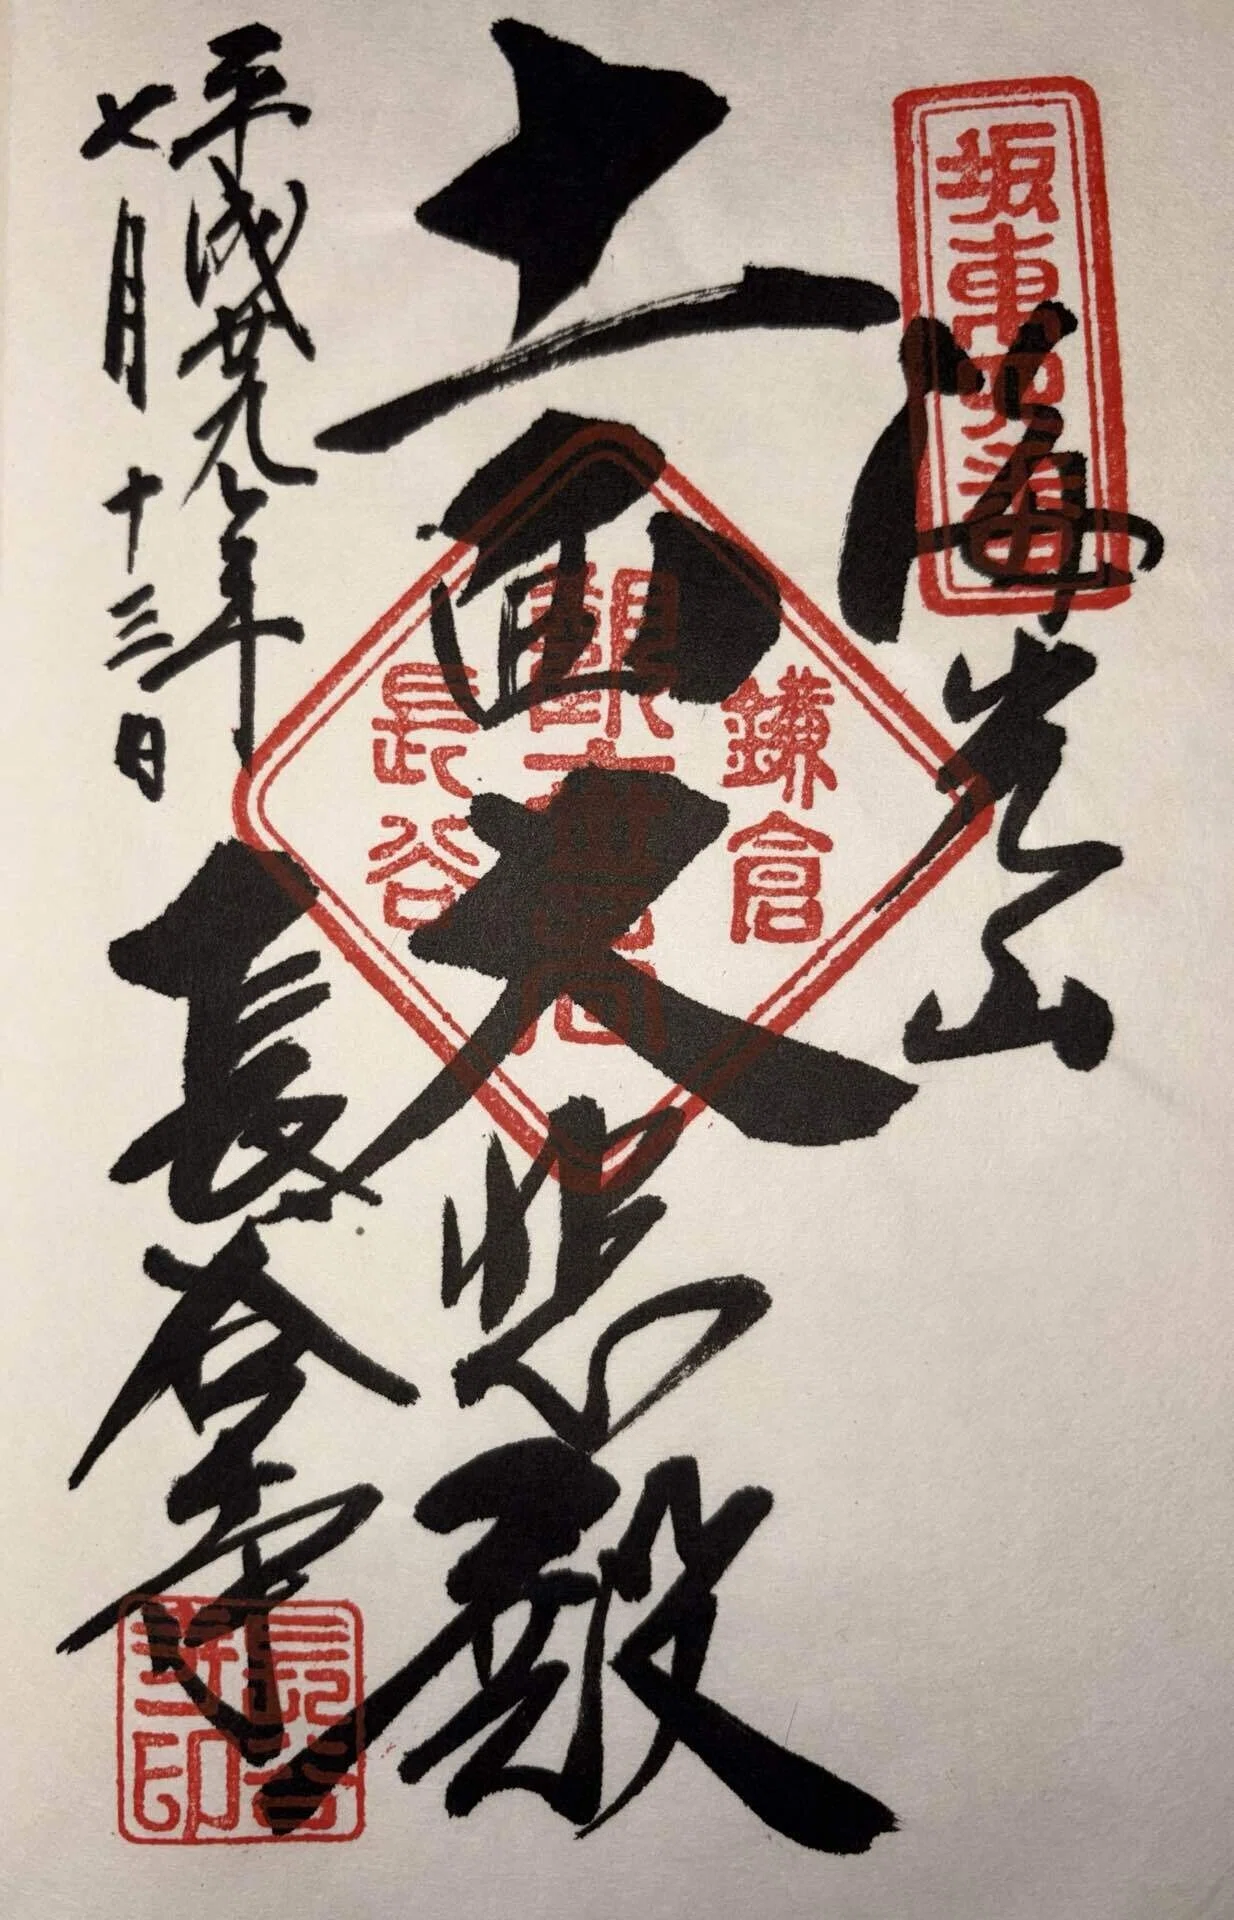 坂東四番
海光山
十一面大悲殿
鎌倉
長谷
平成廿九年
七月十三日
長谷寺
長谷寺印